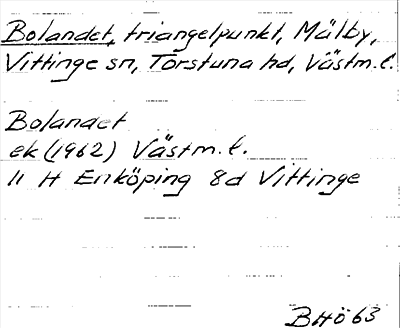 Bolandet, triangelpunkt, Mälby,
Vittinge sn, Torstuna hd, Västm. l.
Bolandet
ek (1962) Västm. l.
11 H Enköping 8d Vittinge
BHö 63